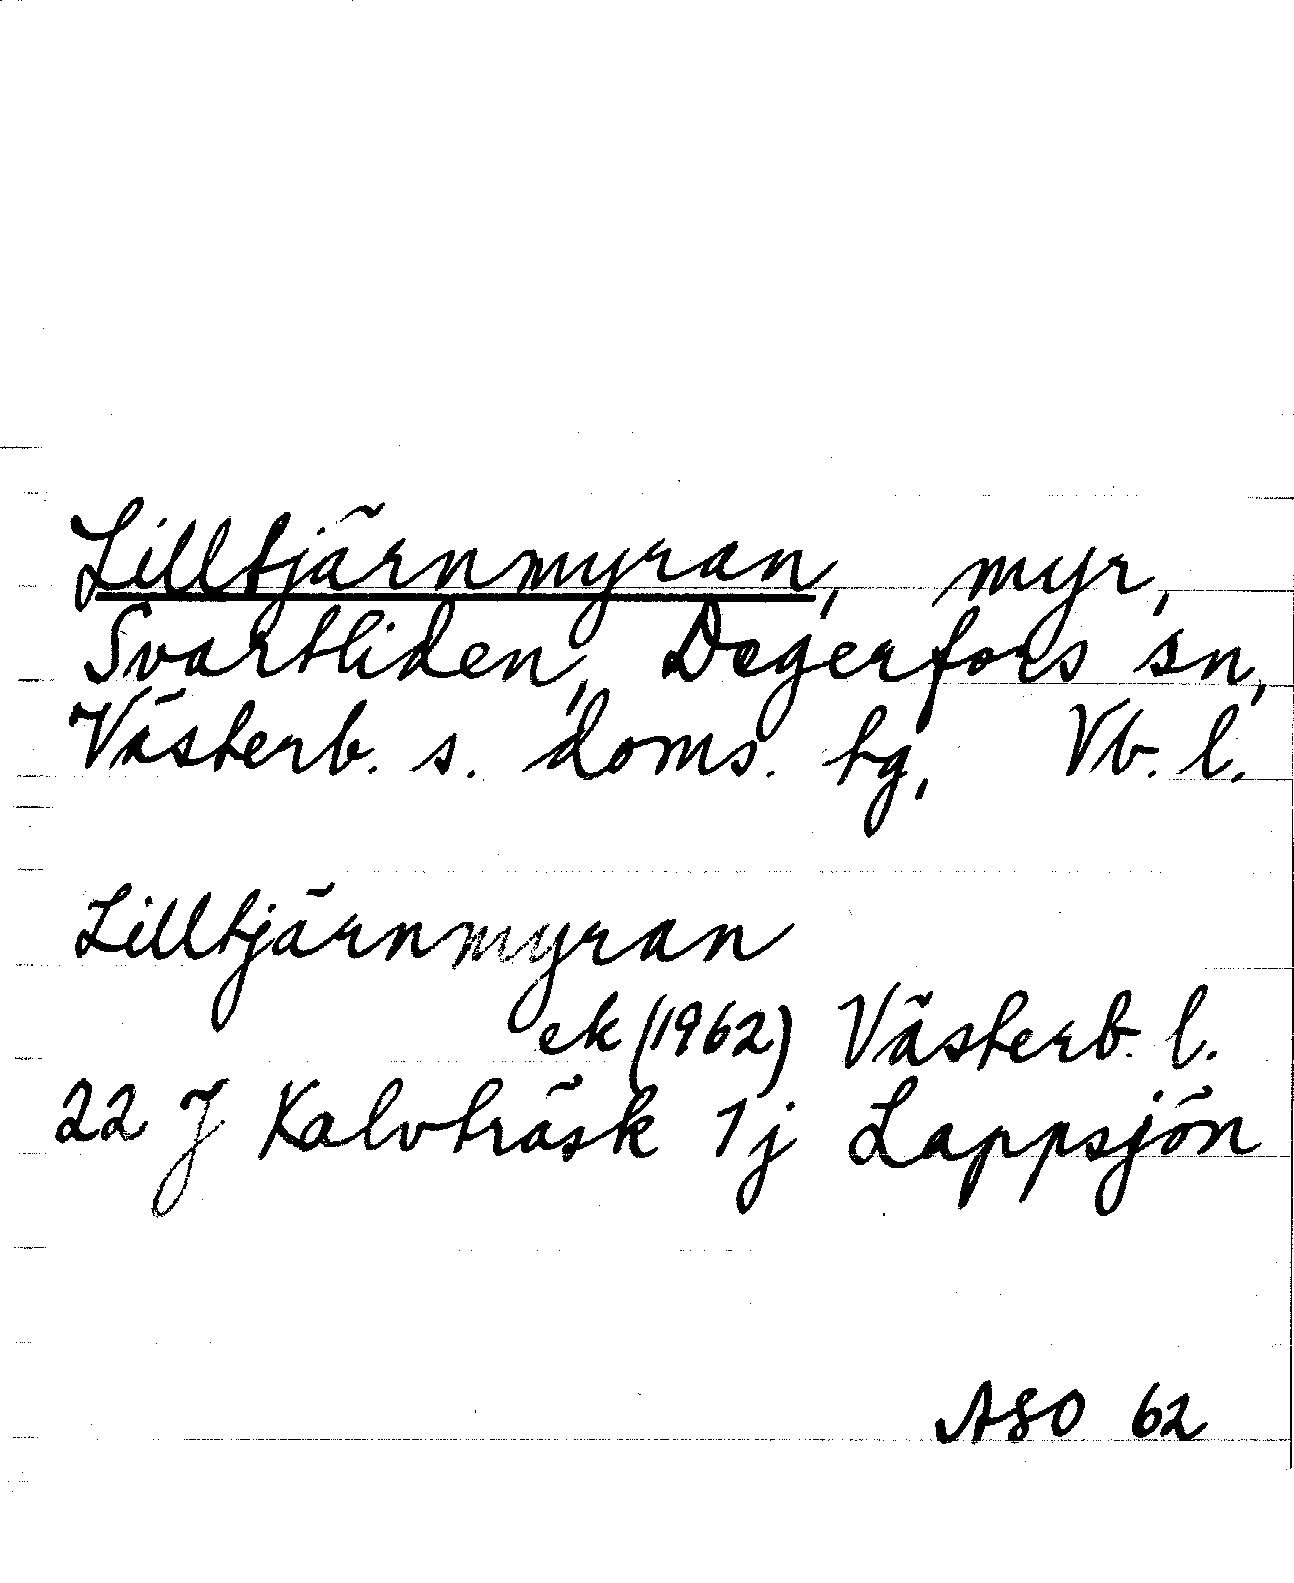 Lilltjärnmyran, myr,
Svartliden, Degerfors sn,
Västerb. s. doms. tg, Vb. l.
Lilltjärnmyran
ek (1962) Västerb. l.
22 J Kalvträsk 1 j Lappsjön
ASO 62